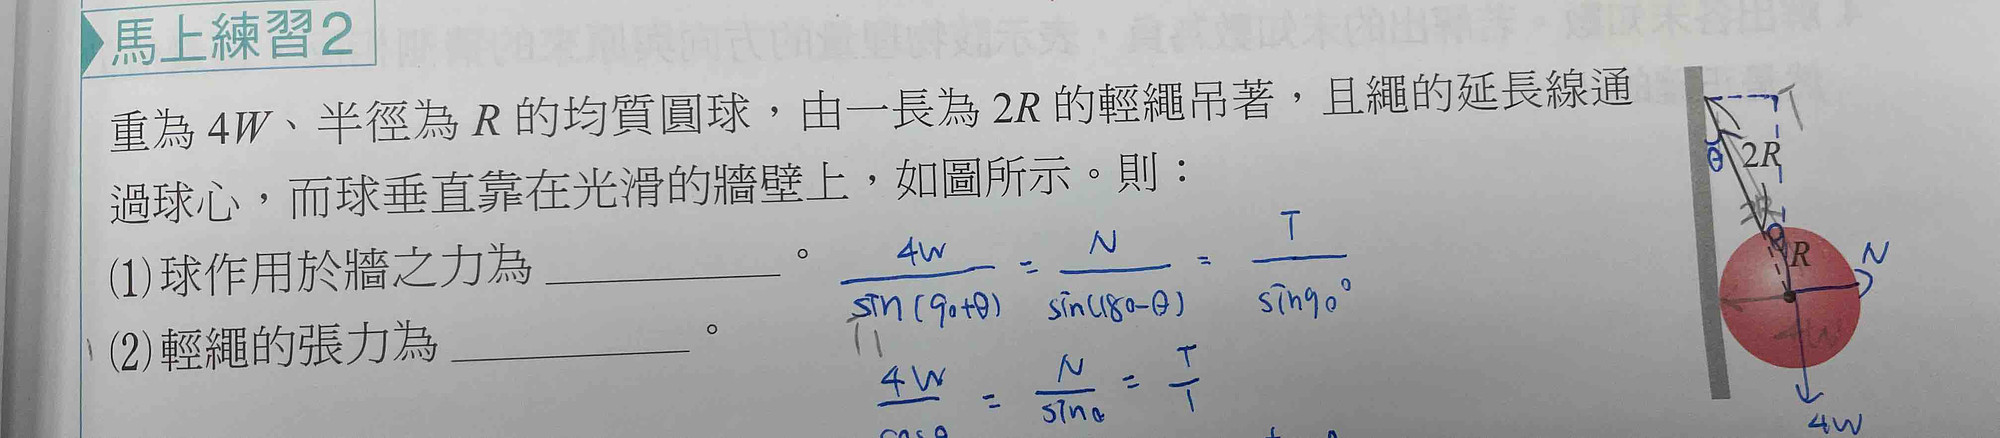 馬上練習2
重為 4W、半徑為 R 的均質圓球，由一長為 2R 的輕繩吊著，且繩的延長線通
過球心，而球垂直靠在光滑的牆壁上，如圖所示。則：
(1)球作用於牆之力為＿＿＿＿＿。
(2)輕繩的張力為＿＿＿＿＿。
4W/sin(90+θ) = N/sin(180-θ) = T/sin90°
4W/cosθ = N/sinθ = T/1
T
θ
2R
2R
θ
R
N
4W
4W